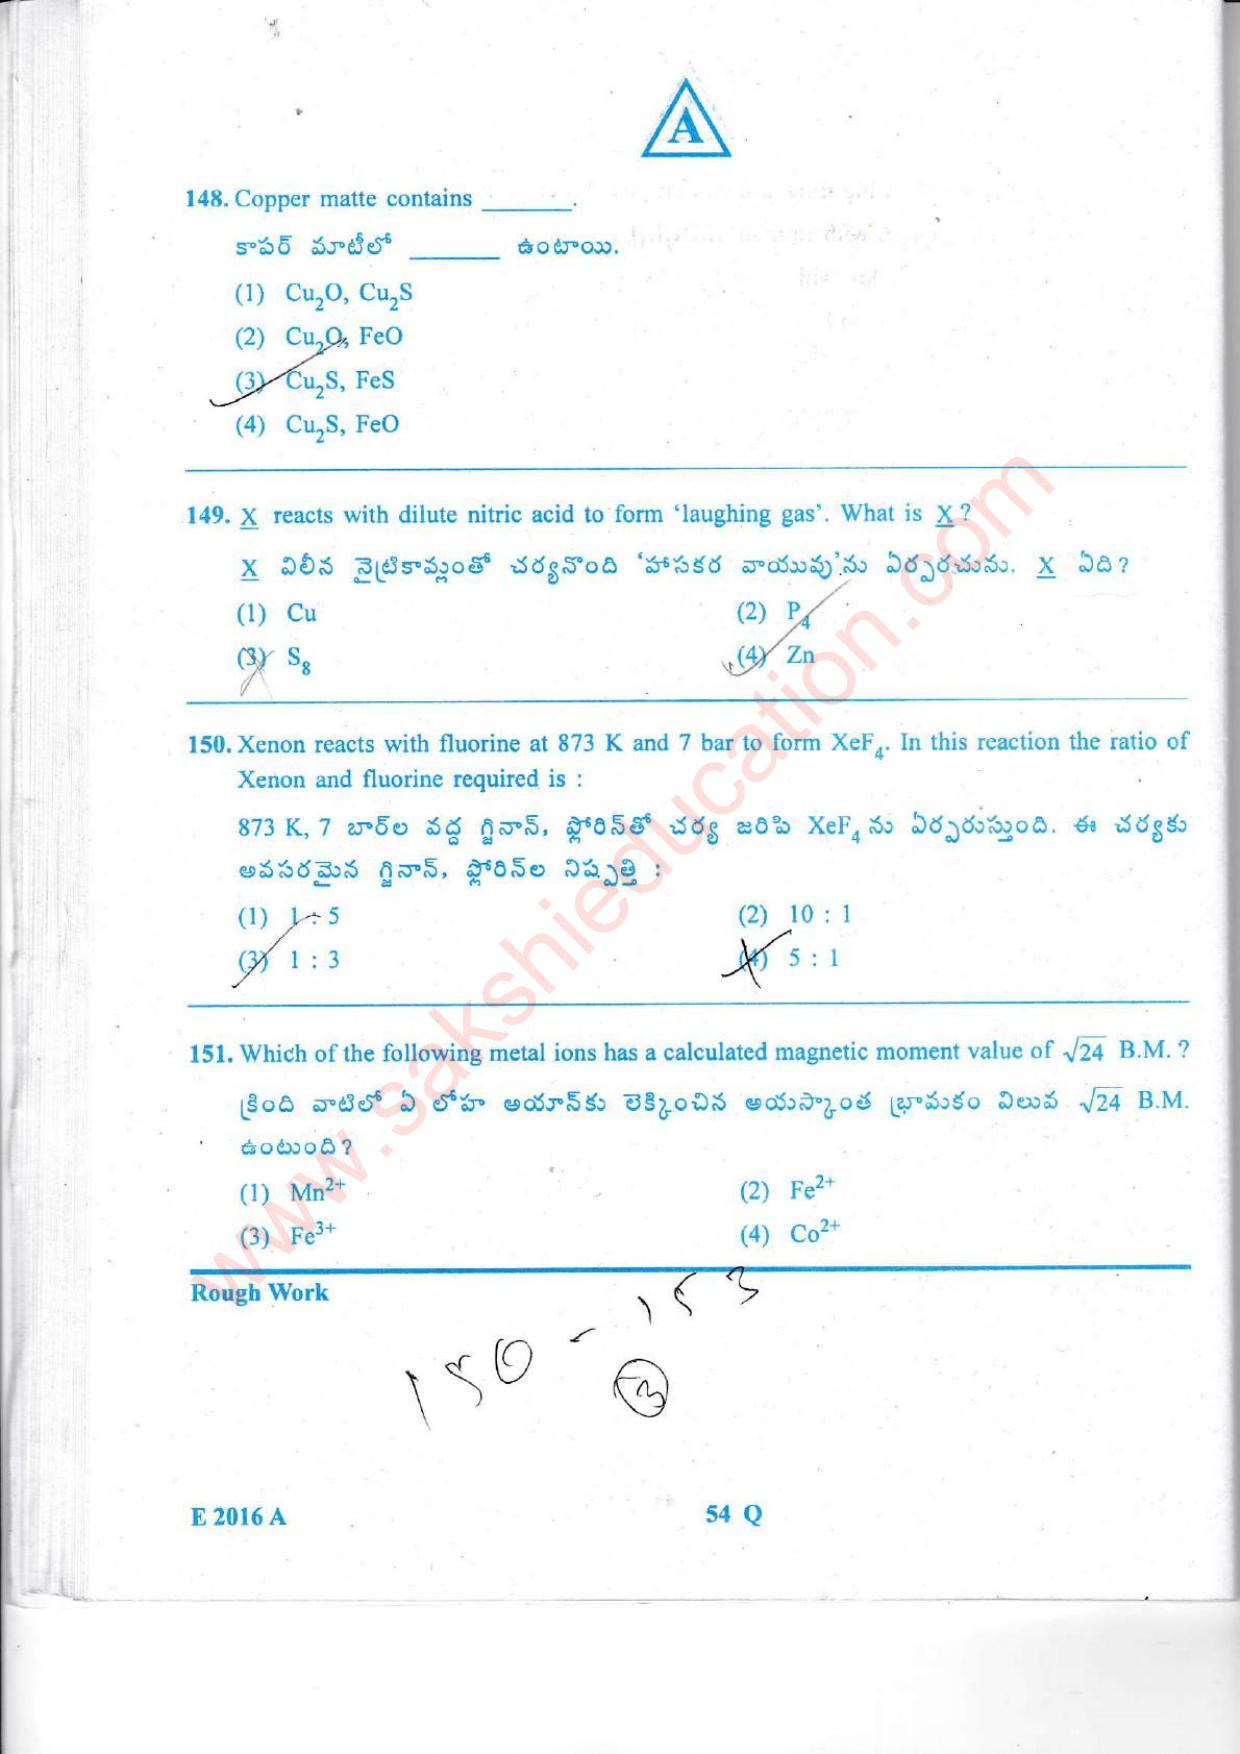 A
148. Copper matte contains ________.
కాపర్ మాటీలో ________ ఉంటాయి.
(1) Cu₂O, Cu₂S
(2) Cu₂O, FeO
(3) Cu₂S, FeS
(4) Cu₂S, FeO
149. X reacts with dilute nitric acid to form ‘laughing gas’. What is X?
X విలీన నైట్రికామ్లంతో చర్యనొంది ‘హాసకర వాయువు’ను ఏర్పరచును. X ఏది?
(1) Cu (2) P₄
(3) S₈ (4) Zn
150. Xenon reacts with fluorine at 873 K and 7 bar to form XeF₄. In this reaction the ratio of
Xenon and fluorine required is :
873 K, 7 బార్‌ల వద్ద గ్జినాన్, ఫ్లోరిన్‌తో చర్య జరిపి XeF₄ ను ఏర్పరుస్తుంది. ఈ చర్యకు
అవసరమైన గ్జినాన్, ఫ్లోరిన్‌ల నిష్పత్తి :
(1) 1 : 5 (2) 10 : 1
(3) 1 : 3 (4) 5 : 1
151. Which of the following metal ions has a calculated magnetic moment value of √24 B.M. ?
క్రింది వాటిలో ఏ లోహ అయాన్‌కు లెక్కించిన అయస్కాంత భ్రామకం విలువ √24 B.M.
ఉంటుంది?
(1) Mn²⁺ (2) Fe²⁺
(3) Fe³⁺ (4) Co²⁺
Rough Work
150 - 153
E 2016 A 54 Q
www.sakshieducation.com